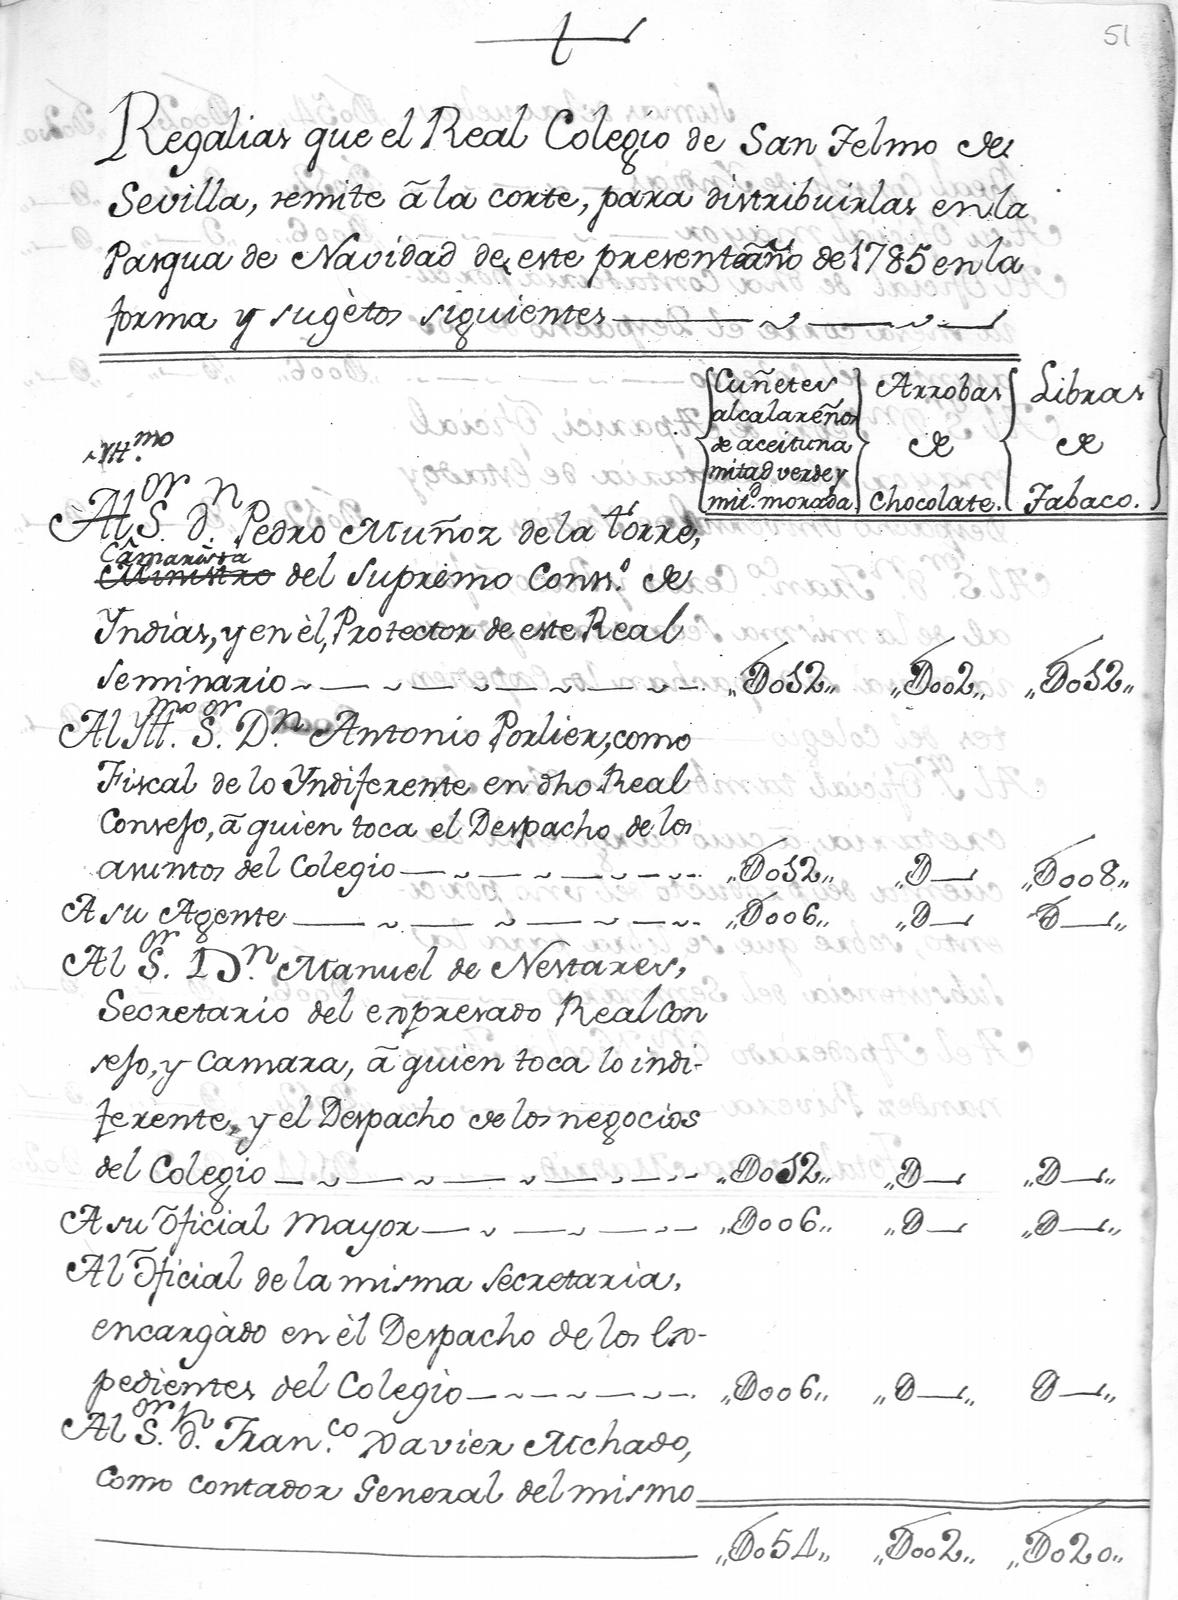 51
Regalias que el Real Colegio de San Telmo de
Sevilla, remite â la corte, para distribuirlas en la
Pasqua de Navidad de este presente año de 1785 en la
forma y sugètos siguientes
Cuñetes
alcalareños
de aceituna
mitad verde y
mitd. morada
Arrobas
de
Chocolate.
Libras
de
Tabaco.
Yllmo.
Al Sor. dn. Pedro Muñoz de la torre,
Câmarista
Ministro del supremo Conso. de
Yndias, y en èl, Protector de este Real
seminario „D012„ „D002„ „D012„
Al Yllmo. Sor. Dn. Antonio Porlier, como
Fiscal de lo Yndiferente en dho Real
Consejo, â quien toca el Despacho de los
asuntos del Colegio „D012„ „D— „D008„
A su Agente „D006„ „D— „D—„
Al Sor. Dn. Manuel de Nestares,
Secretario del expresado Real Con
sejo, y Camara, â quien toca lo indi-
ferente, y el Despacho de los negocios
del Colegio „D012„ „D— „D—„
A su Oficial Mayor „D006„ „D— „D—„
Al Oficial de la misma secretaria,
encargàdo en èl Despacho de los Ex-
pedientes del Colegio „D006„ „D—„ D—„
Al Sor. dn. Franco. Xavier Mchado,
como contador General del mismo
„D054„ „D002„ „D020„